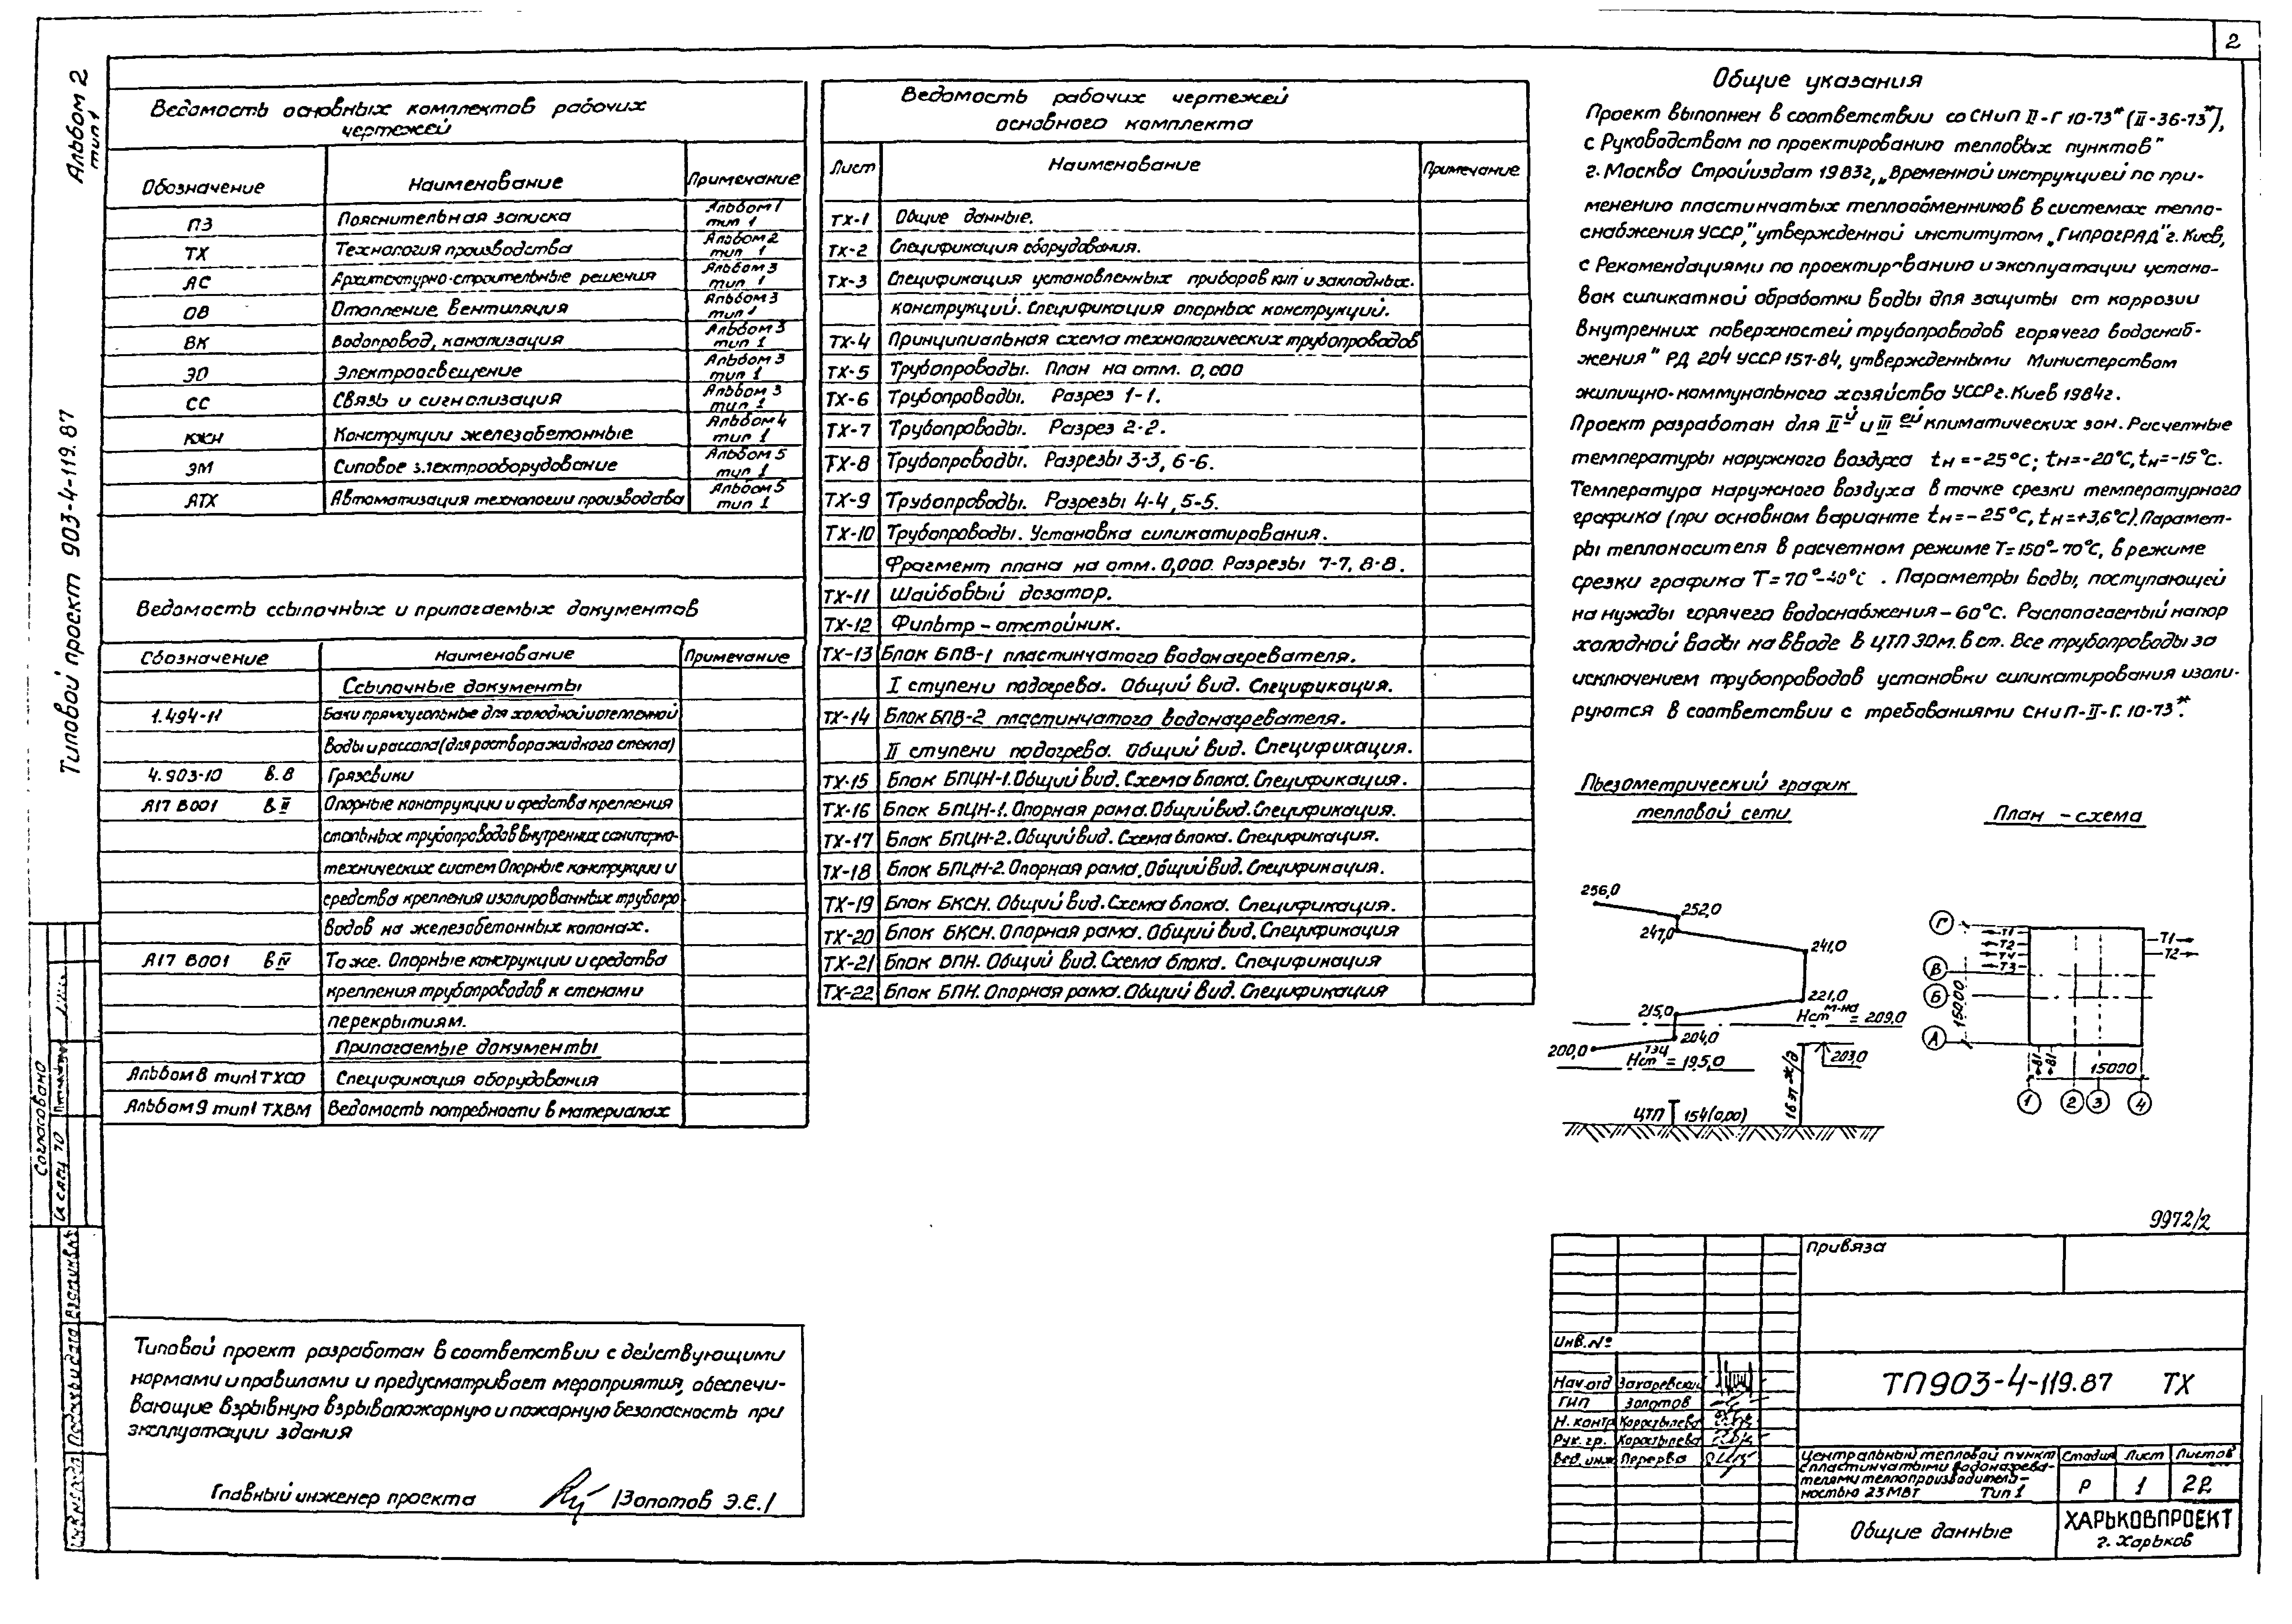 2
Альбом 2
тип 1
Типовой проект 903-4-119.87
Ведомость основных комплектов рабочих
чертежей
Обозначение Наименование Примечание
ПЗ Пояснительная записка Альбом 1 тип 1
ТХ Технология производства Альбом 2 тип 1
АС Архитектурно-строительные решения Альбом 3 тип 1
ОВ Отопление, вентиляция Альбом 3 тип 1
ВК Водопровод, канализация Альбом 3 тип 1
ЭО Электроосвещение Альбом 3 тип 1
СС Связь и сигнализация Альбом 3 тип 1
КЖН Конструкции железобетонные Альбом 4 тип 1
ЭМ Силовое электрооборудование Альбом 5 тип 1
АТХ Автоматизация технологии производства Альбом 5 тип 1
Ведомость ссылочных и прилагаемых документов
Обозначение Наименование Примечание
Ссылочные документы
1.494-11 Баки прямоугольные для холодной отепленной
воды и рассола (для раствора жидкого стекла)
4.903-10 в.8 Грязевики
А17 В001 в II Опорные конструкции и средства крепления
стальных трубопроводов внутренних санитарно-
технических систем Опорные конструкции и
средства крепления изолированных трубопро
водов на железобетонных колонах.
А17 В001 в IV То же. Опорные конструкции и средства
крепления трубопроводов к стенам и
перекрытиям.
Прилагаемые документы
Альбом 8 тип 1 ТХСО Спецификация оборудования
Альбом 9 тип 1 ТХВМ Ведомость потребности в материалах
Типовой проект разработан в соответствии с действующими
нормами и правилами и предусматривает мероприятия, обеспечи-
вающие взрывную взрывопожарную и пожарную безопасность при
эксплуатации здания
Главный инженер проекта /Золотов Э.Е./
Ведомость рабочих чертежей
основного комплекта
Лист Наименование Примечание
ТХ-1 Общие данные.
ТХ-2 Спецификация оборудования.
ТХ-3 Спецификация установленных приборов кип и закладных.
конструкций. Спецификация опорных конструкций.
ТХ-4 Принципиальная схема технологических трубопроводов
ТХ-5 Трубопроводы. План на отм. 0,000
ТХ-6 Трубопроводы. Разрез 1-1.
ТХ-7 Трубопроводы. Разрез 2-2.
ТХ-8 Трубопроводы. Разрезы 3-3, 6-6.
ТХ-9 Трубопроводы. Разрезы 4-4, 5-5.
ТХ-10 Трубопроводы. Установка силикатирования.
Фрагмент плана на отм. 0,000. Разрезы 7-7, 8-8.
ТХ-11 Шайбовый дозатор.
ТХ-12 Фильтр-отстойник.
ТХ-13 Блок БПВ-1 пластинчатого водонагревателя.
I ступени подогрева. Общий вид. Спецификация.
ТХ-14 Блок БПВ-2 пластинчатого водонагревателя.
II ступени подогрева. Общий вид. Спецификация.
ТХ-15 Блок БПЦН-1. Общий вид. Схема блока. Спецификация.
ТХ-16 Блок БПЦН-1. Опорная рама. Общий вид. Спецификация.
ТХ-17 Блок БПЦН-2. Общий вид. Схема блока. Спецификация.
ТХ-18 Блок БПЦН-2. Опорная рама. Общий вид. Спецификация.
ТХ-19 Блок БКСН. Общий вид. Схема блока. Спецификация.
ТХ-20 Блок БКСН. Опорная рама. Общий вид. Спецификация
ТХ-21 Блок БПН. Общий вид. Схема блока. Спецификация
ТХ-22 Блок БПН. Опорная рама. Общий вид. Спецификация
Общие указания
Проект выполнен в соответствии со СНиП II-Г 10-73* (II-36-73*),
с Руководством по проектированию тепловых пунктов"
г. Москва Стройиздат 1983г, „Временной инструкцией по при-
менению пластинчатых теплообменников в системах тепло-
снабжения УССР," утвержденной институтом „ГИПРОГРАД" г. Киев,
с Рекомендациями по проектированию и эксплуатации устано-
вок силикатной обработки воды для защиты от коррозии
внутренних поверхностей трубопроводов горячего водоснаб-
жения" РД 204 УССР 157-84, утвержденными Министерством
жилищно-коммунального хозяйства УССР г. Киев 1984г.
Проект разработан для IIй и IIIей климатических зон. Расчетные
температуры наружного воздуха tн=-25°С; tн=-20°С, tн=-15°С.
Температура наружного воздуха в точке срезки температурного
графика (при основном варианте tн=-25°С, tн=+3,6°С). Парамет-
ры теплоносителя в расчетном режиме Т=150°-70°С, в режиме
срезки графика Т=70°-40°С . Параметры воды, поступающей
на нужды горячего водоснабжения - 60°С. Располагаемый напор
холодной воды на вводе в ЦТП 30м. в ст. Все трубопроводы за
исключением трубопроводов установки силикатирования изоли-
руются в соответствии с требованиями СНиП-II-Г. 10-73*.
Пьезометрический график
тепловой сети
План - схема
256,0
252,0
247,0
241,0
221,0
215,0
Нст м-на = 209,0
204,0
200,0
Нст ТЭЦ = 195,0
203,0
16 эт ж/д
ЦТП 154(0,00)
Г В Б А
Т1 Т2 Т4 Т3
Т1
Т2
15000
В1 В1
15000
1 2 3 4
9972/2
Привяза
Инв. №
Нач. отд Захаревский
ГИП Золотов
Н. контр Коростылева
Рук. гр. Коростылева
Вед. инж Перерва
ТП903-4-119.87 ТХ
Центральный тепловой пункт
с пластинчатыми водонагрева-
телями теплопроизводитель-
ностью 23 МВт Тип 1
Стадия Лист Листов
Р 1 22
Общие данные
ХАРЬКОВПРОЕКТ
г. Харьков
Согласовано